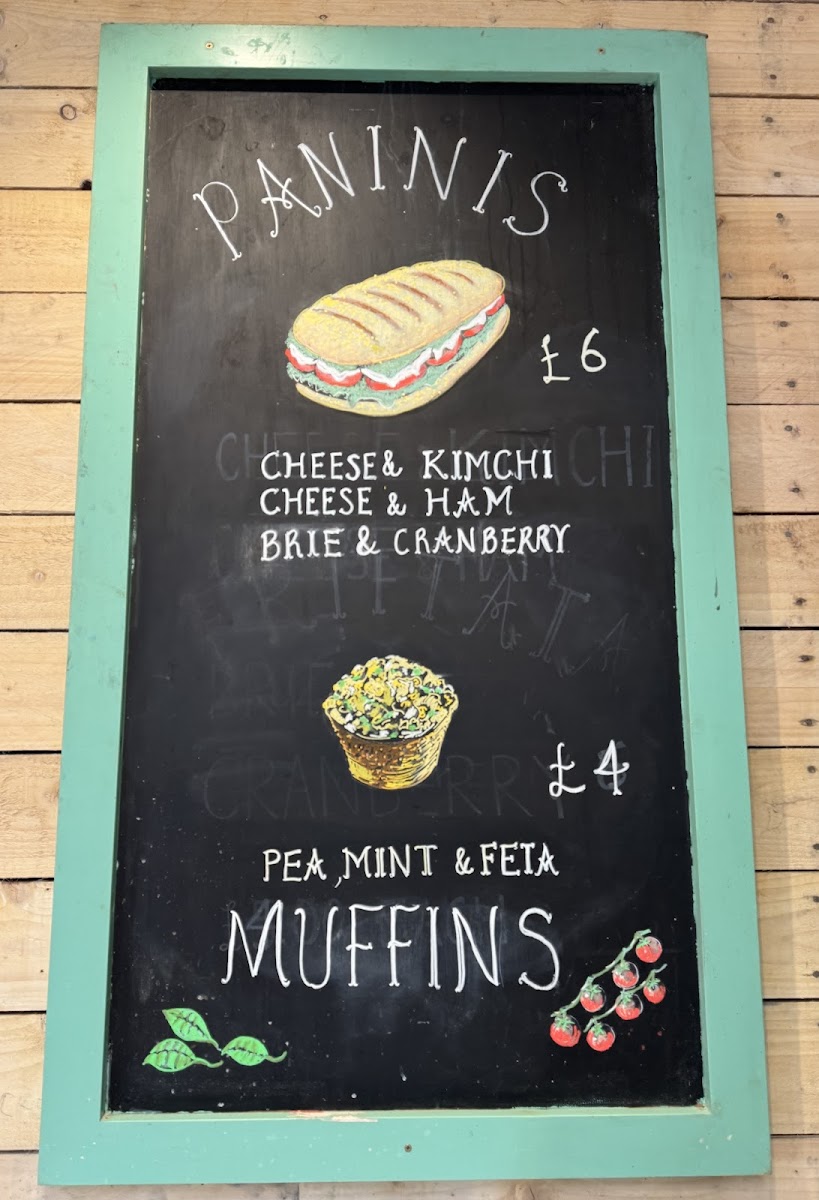 PANINIS
£6
CHEESE & KIMCHI
CHEESE & HAM
BRIE & CRANBERRY
£4
PEA, MINT & FETA
MUFFINS